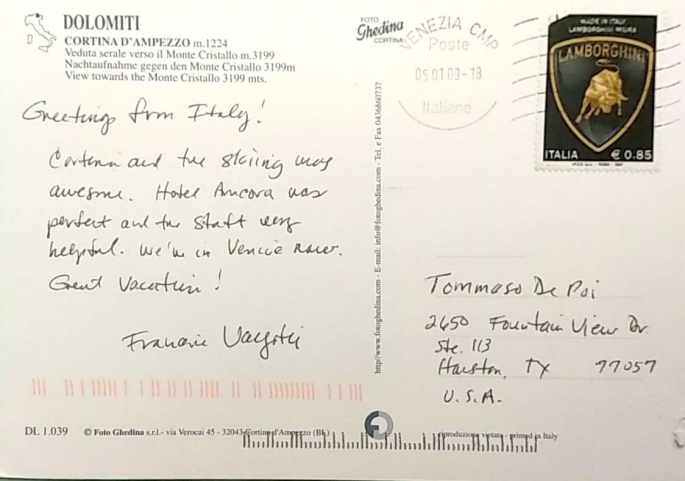 D
DOLOMITI
CORTINA D'AMPEZZO m.1224
Veduta serale verso il Monte Cristallo m.3199
Nachtaufnahme gegen den Monte Cristallo 3199m
View towards the Monte Cristallo 3199 mts.
Greetings from Italy!
Cortina and the skiing was
awesome. Hotel Ancora was
perfect and the staff very
helpful. We're in Venice now.
Great Vacation!
FOTO
Ghedina
CORTINA
VENEZIA CMP
Poste
05.01.09-18
Italiane
MADE IN ITALY
LAMBORGHINI MIURA
LAMBORGHINI
ITALIA € 0.85
http//www.fotoghedina.com - E-mail: info@fotoghedina.com - Tel. e Fax 0436860737
Tommaso De Poi
2650 Fountain View Dr.
Ste. 113
Houston, TX 77057
U.S.A.
DL 1.039 © Foto Ghedina s.r.l.- via Verocai 45 - 32043 Cortina d'Ampezzo (BL) riproduzione vietata - printed in Italy